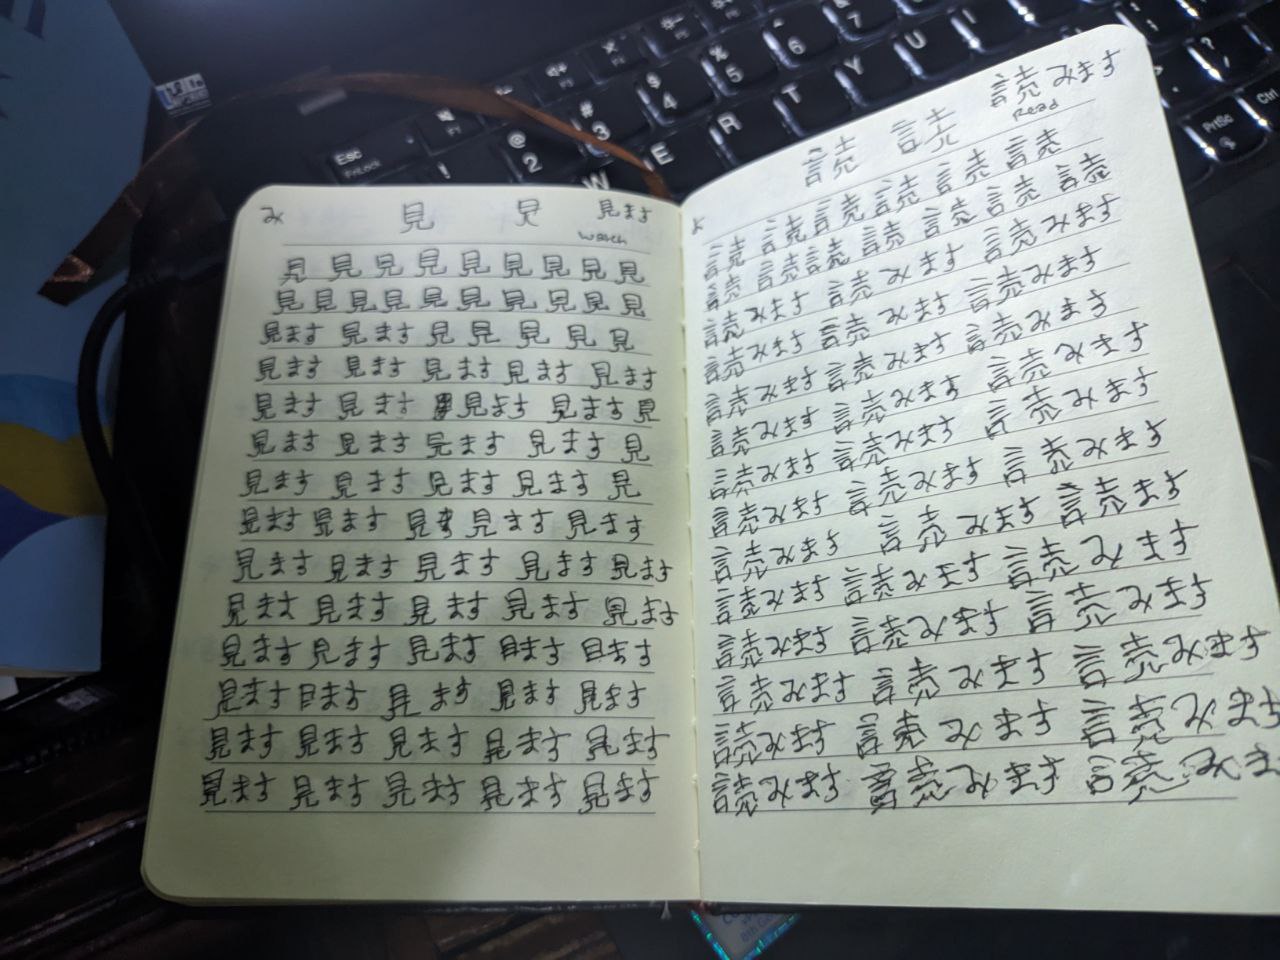 み 見 見 見ます
watch
見 見 見 見 見 見 見 見 見
見 見 見 見 見 見 見 見 見 見
見ます 見ます 見 見 見 見 見
見ます 見ます 見ます 見ます 見ます
見ます 見ます 見ます 見ます 見
見ます 見ます 見ます 見ます 見
見ます 見ます 見ます 見ます 見
見ます 見ます 見 見ます 見ます
見ます 見ます 見ます 見ます 見ます
見ます 見ます 見ます 見ます 見ます
見ます 見ます 見ます 見ます 見ます
見ます 見ます 見ます 見ます 見ます
見ます 見ます 見ます 見ます 見ます
見ます 見ます 見ます 見ます 見ます
よ 読 読 読みます
Read
読 読 読 読 読 読
読 読 読 読 読 読 読
読みます 読みます 読みます
読みます 読みます 読みます
読みます 読みます 読みます
読みます 読みます 読みます
読みます 読みます 読みます
読みます 読みます 読みます
読みます 読みます 読ます
読みます 読みます 読みます
読みます 読みます 読みます
読みます 読みます 読みます
読みます 読みます 読みます
読みます 読みます 読みま
Esc
FnLock
@ 2
# 3
$ 4
% 5
^ 6
& 7
W E R T Y U I
PrtSc
Ctrl